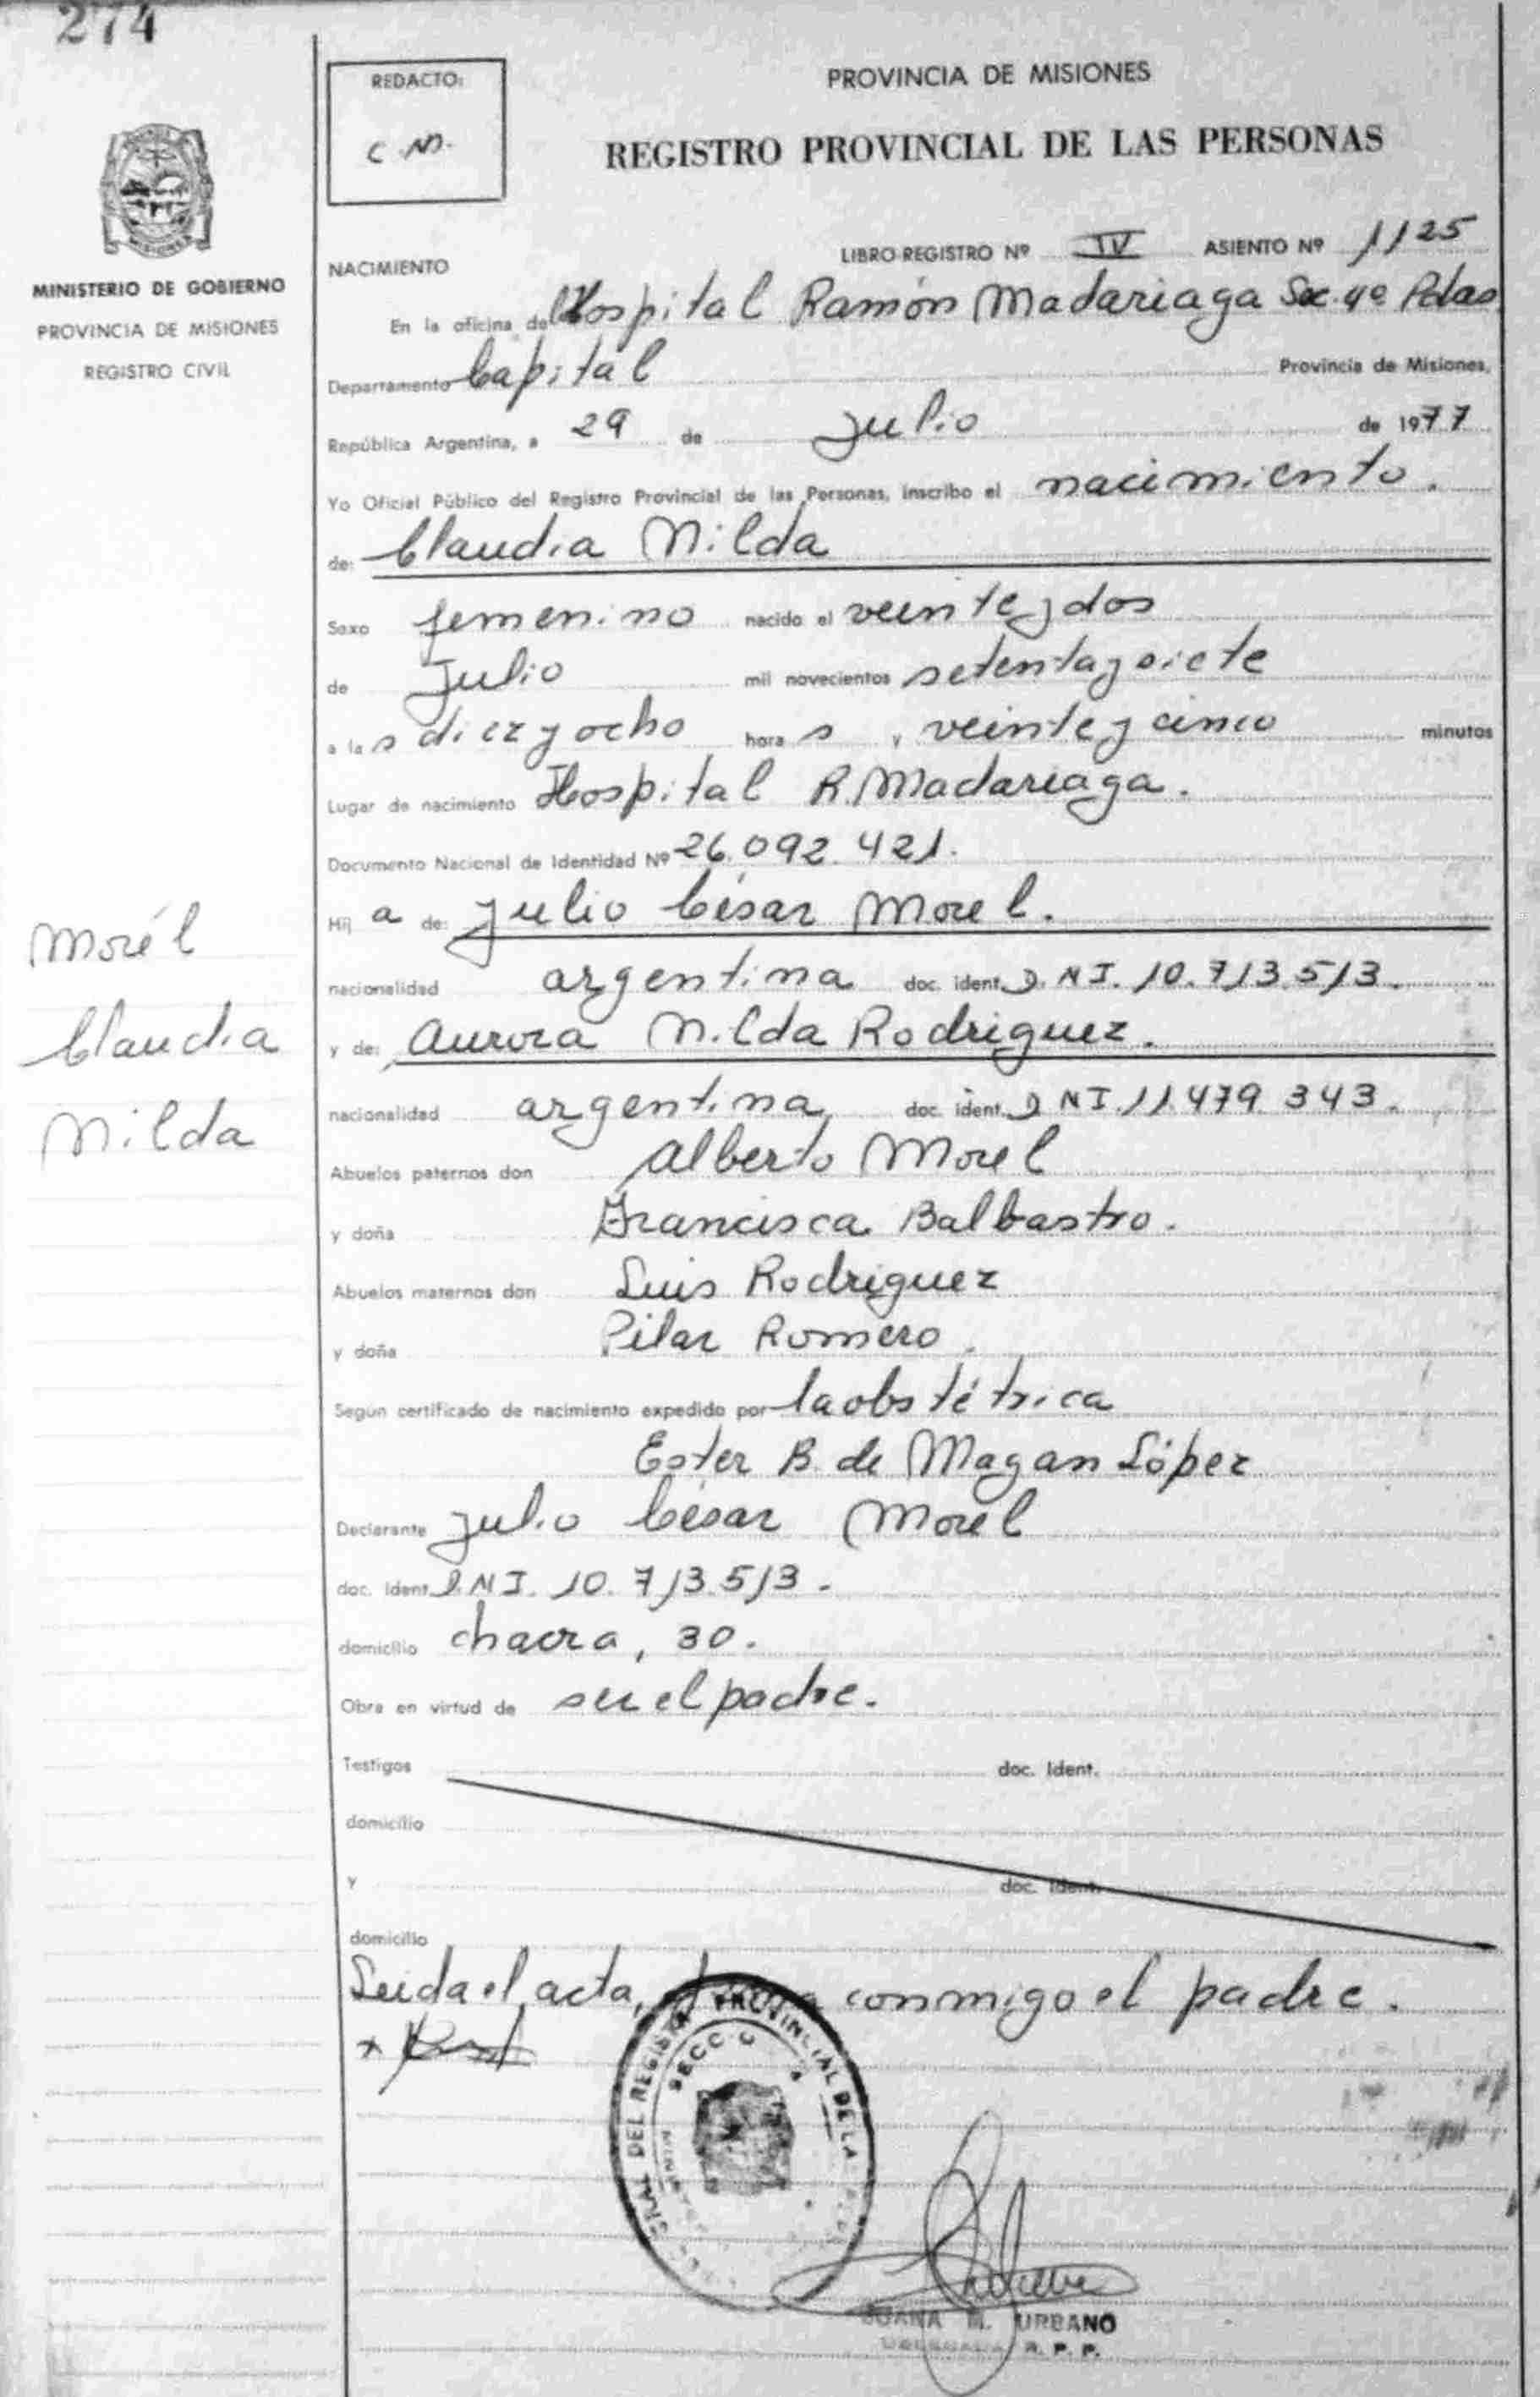 274
REDACTO:
C.M.
PROVINCIA DE MISIONES
REGISTRO PROVINCIAL DE LAS PERSONAS
MINISTERIO DE GOBIERNO
PROVINCIA DE MISIONES
REGISTRO CIVIL
NACIMIENTO
LIBRO REGISTRO Nº IV ASIENTO Nº 1125
En la oficina del Hospital Ramón Madariaga Sec. 4º Pdas
Departamento Capital Provincia de Misiones,
República Argentina, a 29 de Julio de 1977
Yo Oficial Público del Registro Provincial de las Personas, inscribo el nacimiento.
de: Claudia Nilda
Sexo femenino nacido el veinte y dos
de Julio mil novecientos setenta y siete
a las diez y ocho horas y veinte y cinco minutos
Lugar de nacimiento Hospital R. Madariaga.
Documento Nacional de Identidad Nº 26.092.421.
Hija de: Julio César Morel.
nacionalidad argentina doc. ident. D.N.I. 10.713.513.
y de: Aurora Nilda Rodriguez.
nacionalidad argentina doc. ident. D.N.I. 11.479.343.
Abuelos paternos don Alberto Morel
y doña Francisca Balbastro.
Abuelos maternos don Luis Rodriguez
y doña Pilar Romero.
Según certificado de nacimiento expedido por la obstétrica
Ester B. de Magan López
Declarante Julio César Morel
doc. Ident. D.N.I. 10.713.513.
domicilio chacra, 30.
Obra en virtud de ser el padre.
Testigos doc. Ident.
domicilio
y doc. Ident.
domicilio
Leida el acta, firma conmigo el padre.
Morél
Claudia
Nilda
DEL REGISTRO PROVINCIAL DE LA
SECC
JUANA M. URBANO
DELEGADA R. P. P.